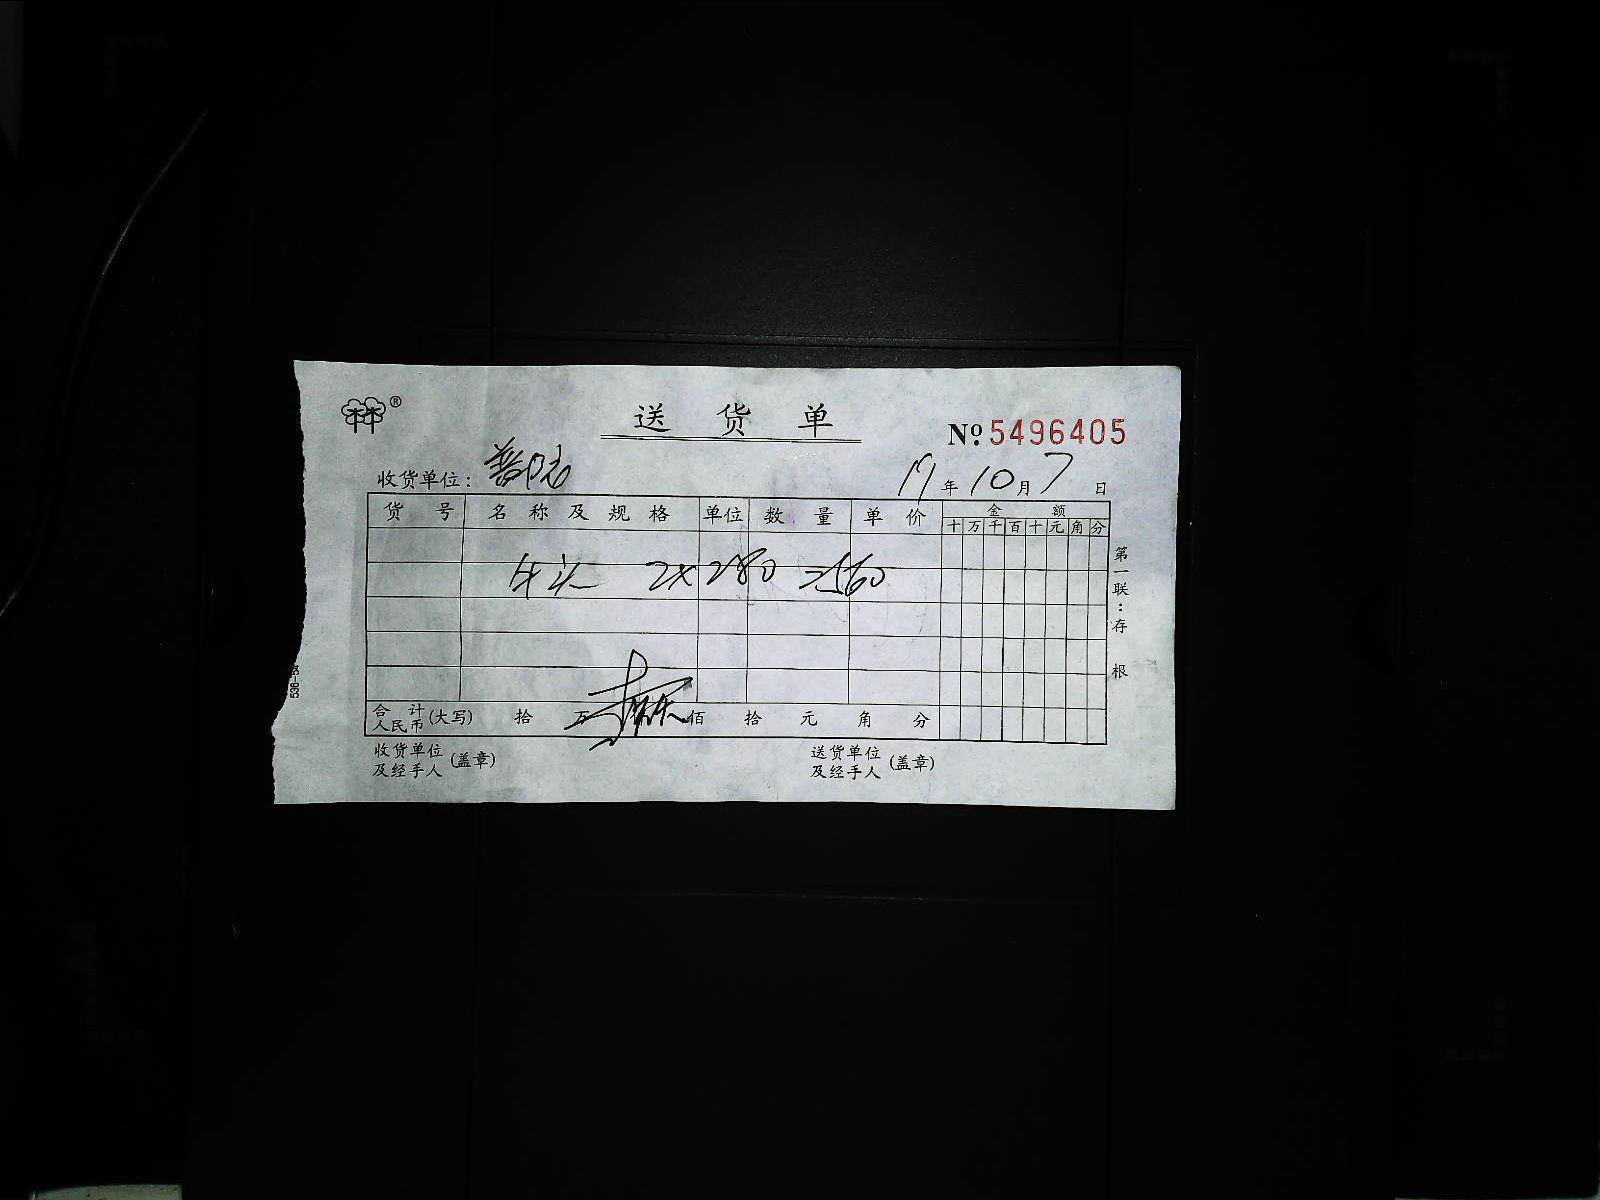 林®
送货单
№ 5496405
收货单位：
17年10月7日
货号 名称及规格 单位 数量 单价 金额
十万千百十元角分
牛头 2×280 =560
第一联：存根
合计人民币(大写) 拾 万 佰 拾 元 角 分
收货单位及经手人(盖章) 送货单位及经手人(盖章)